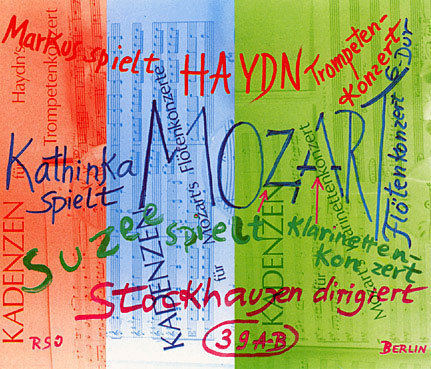 Markus spielt HAYDN Trompeten-
Konzert
Kathinka
spielt
MOZART
Flötenkonzert G-Dur
Suzee spielt Klarinetten-
Konzert
Stockhausen dirigiert
RSO
39 A-B
BERLIN
KADENZEN
für
Haydn's
Trompetenkonzert
KADENZEN
für
Mozarts Flötenkonzerte
KADENZEN
für
Klarinettenkonzert